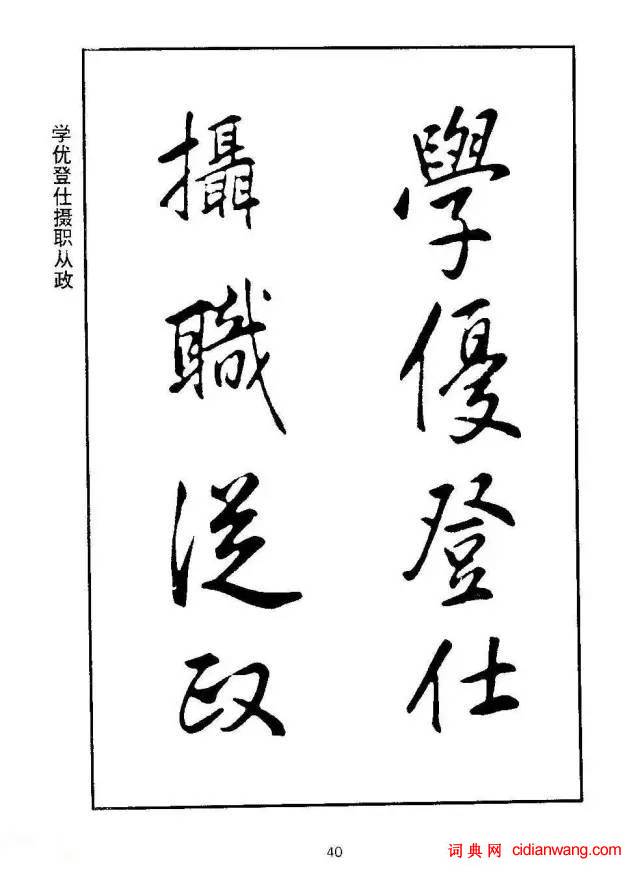 學優登仕
攝職從政
学优登仕摄职从政
40
词典网 cidianwang.com